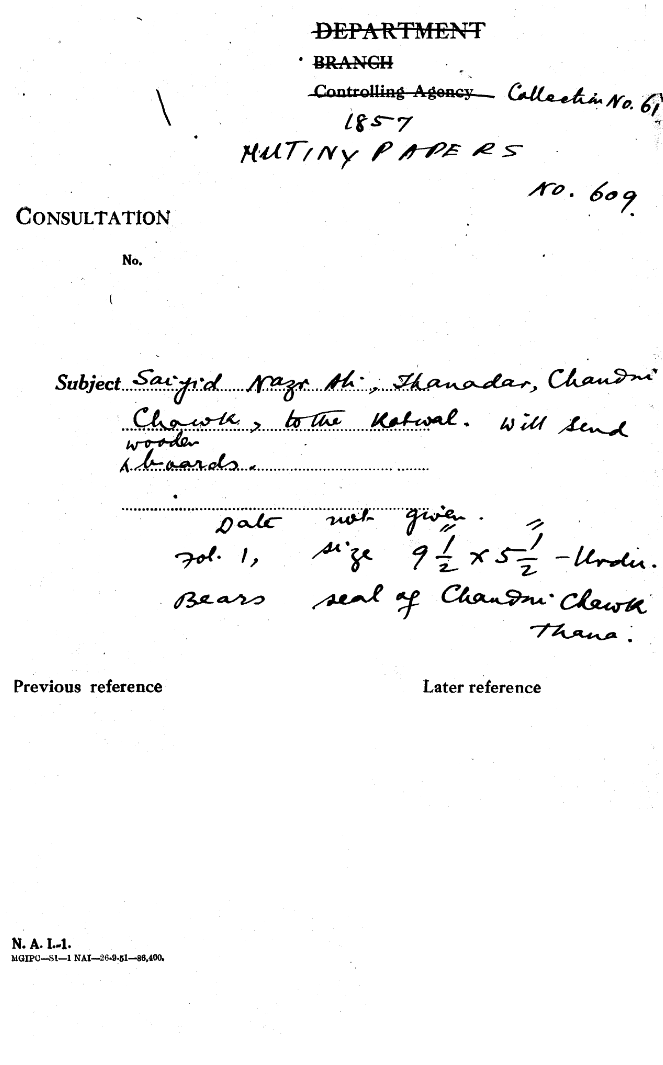 DEPARTMENT
BRANCH
Controlling Agency Collection No. 61
1857
MUTINY PAPERS
No. 609.
CONSULTATION
No.
Subject Saiyid Nazr Ali, Thanadar, Chandni
Chowk, to the Kotwal. Will send
wooden
boards.
Date not given.
Fol. 1, size 9 1/2" x 5 1/2" - Urdu.
Bears seal of Chandni Chowk
Thana.
Previous reference Later reference
N. A. I.-1.
MGIPC—S1—1 NAI—26-9-51—86,400.